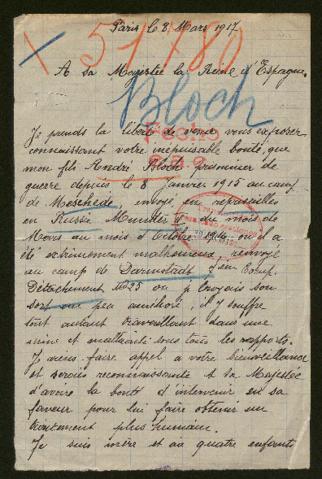 Paris le 8 Mars 1917.
57780
A sa Majestée la Reine d'Espagne.
Bloch
Je prends la liberté de venir vous exposer
connaissant votre inépuisable bonté, que
mon fils André Bloch prisonnier de
guerre depuis le 8 janvier 1915 au camp
de Meschede, envoyé en représailles
en Russie Munster II du mois de
Mars au mois d'Octobre 1916 ou il a
été extrêmement malheureux, renvoyé
au camp de Darmstadt en
Détachement 1125 ou je croyais son
sort un peu amélioré, il y souffre
tout autant travaillant dans une
mine et maltraité sous tous les rapports.
Je viens faire appel à votre bienveillance
et serais reconnaissante à sa Majestée
d'avoir la bonté d'intervenir en sa
faveur pour lui faire obtenir un
traitement plus humain.
Je suis mère et ai quatre enfants